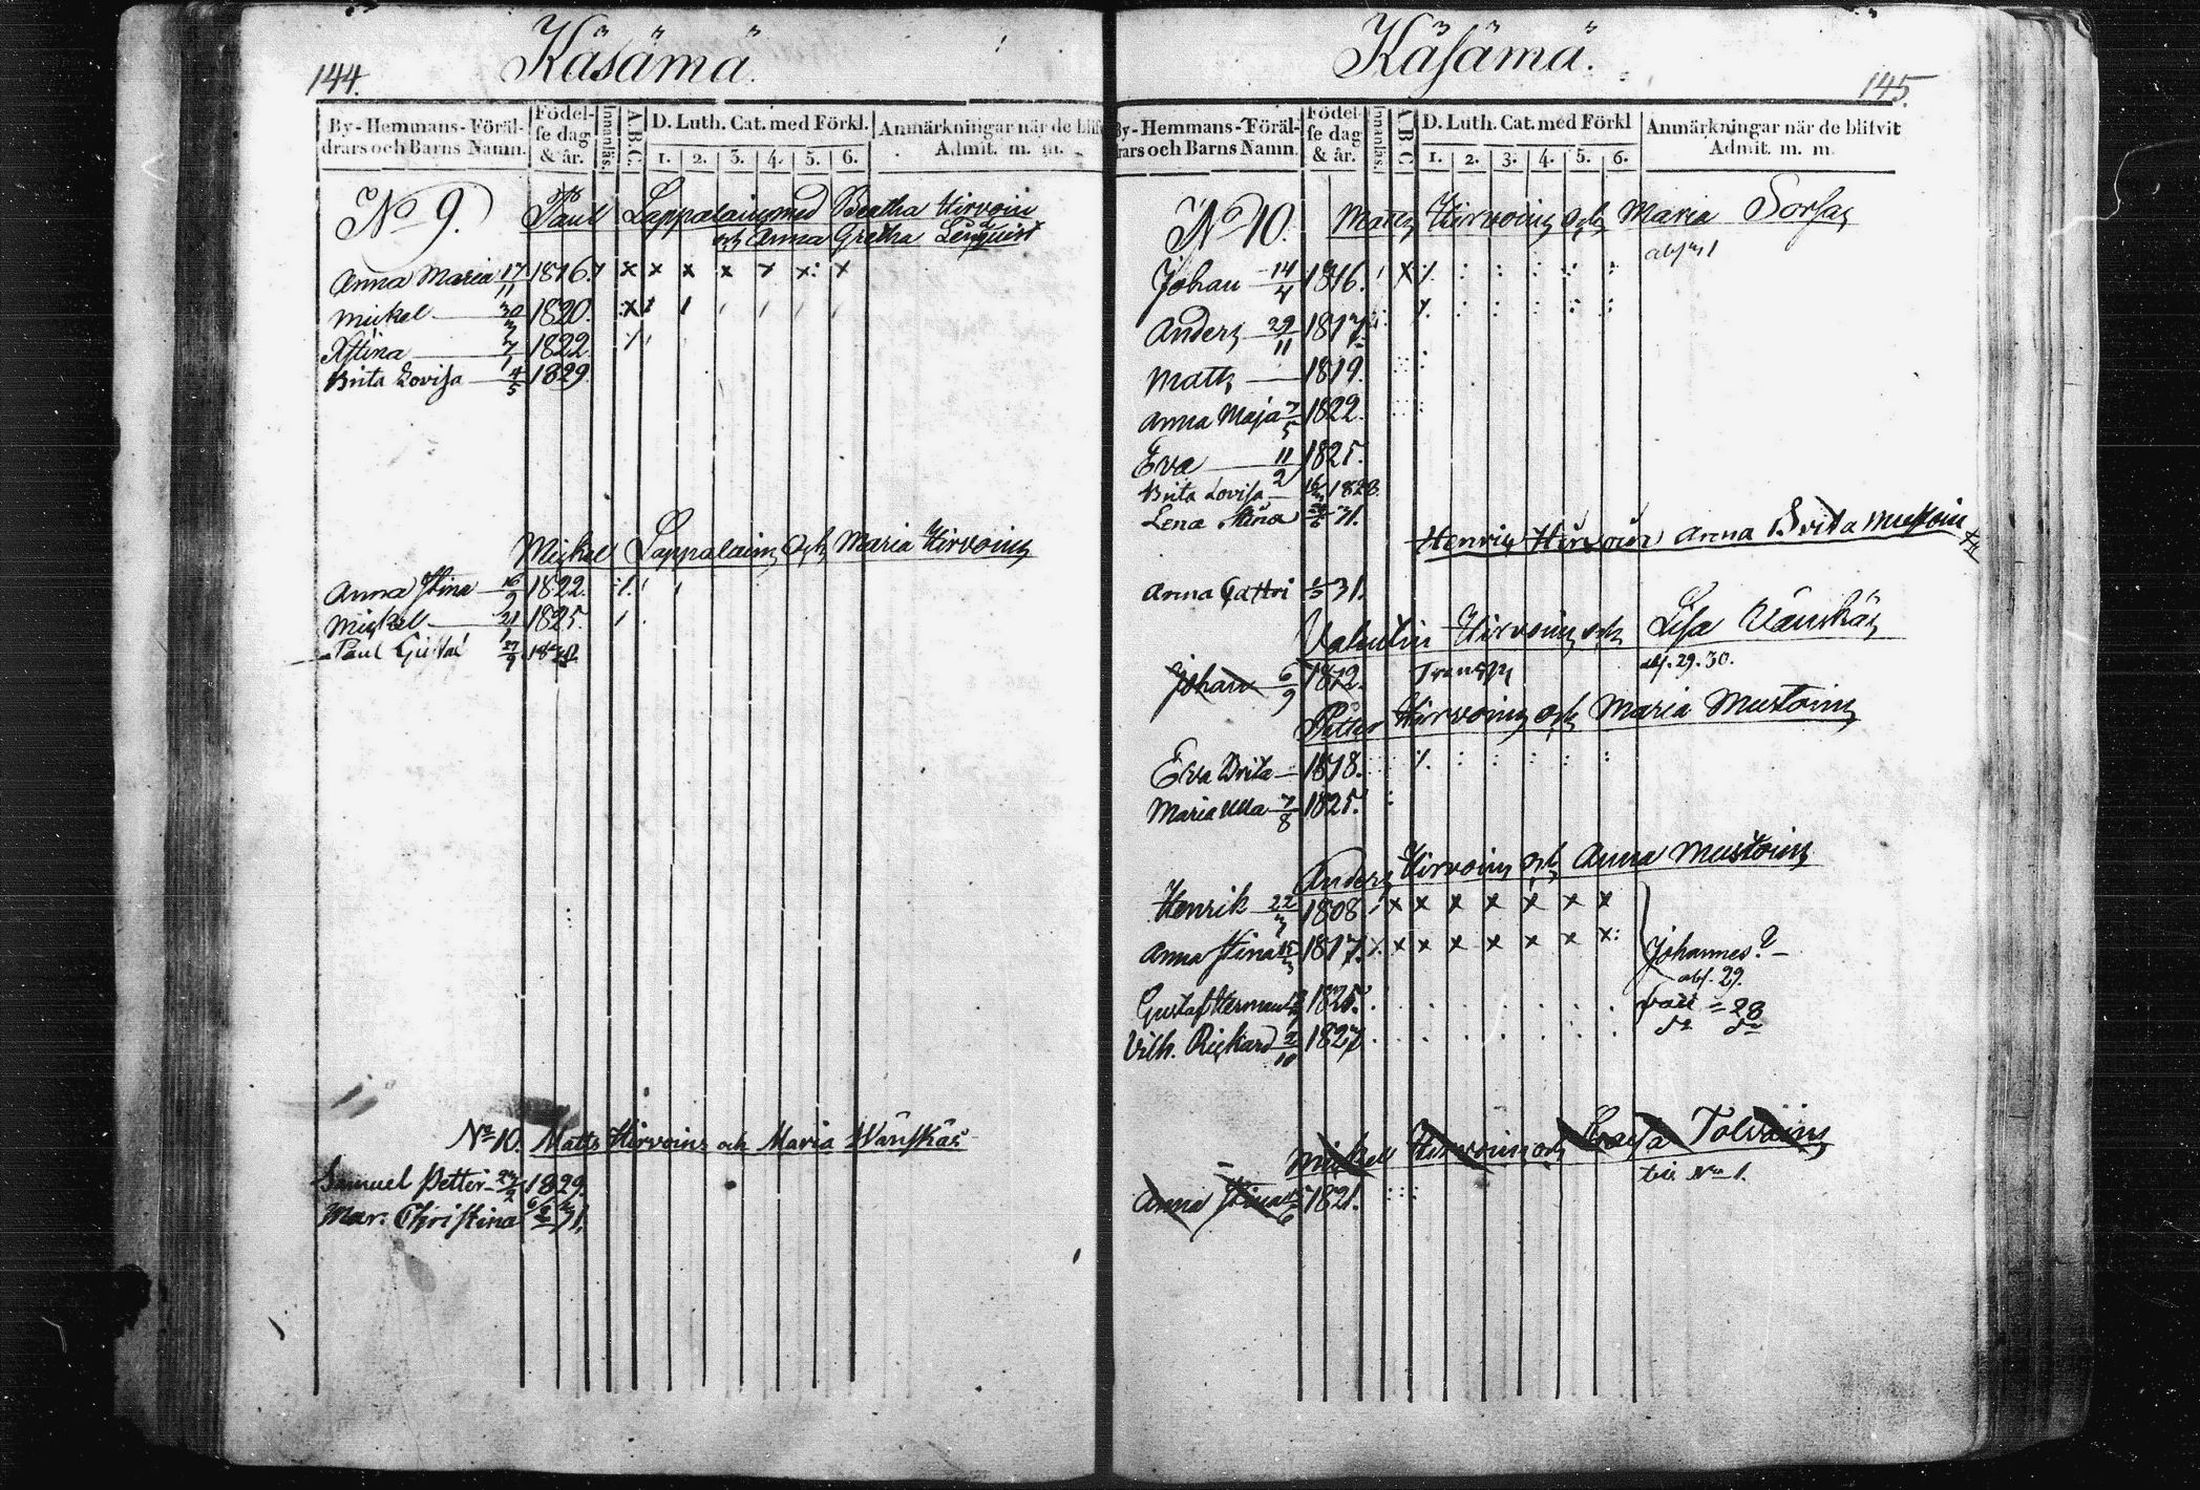 144.
Käsämä.
By- Hemmans- Föräl-
drars och Barns Namn.
Födel-
se dag
& år.
Innanläs.
A.B.C.
D. Luth. Cat. med Förkl.
1. 2. 3. 4. 5. 6.
Anmärkningar när de blifv
Admit. m. m.
No 9. Paul Lappalain med Beatha Hirvoin
och Anna Gretha
Anna Maria 17/11 1816. x x x x x x: x
Mickel 30/3 1820.
Xstina 7/1 1822.
Brita Lovisa 4/5 1829
Mickel Lappalain och Maria Hirvoin
Anna Stina 16/9 1822.
Mickel 21/1 1825.
Paul Gustav 27/9
No 10. Matts Hirvoin och Maria Wänskäs
Samuel Petter 24/2 1829.
Mar. Christina 31.
145.
Käsämä.
By- Hemmans- Föräl-
rars och Barns Namn
Födel-
se dag
& år.
Innanläs.
A.B.C
D. Luth. Cat. med Förkl
1. 2. 3. 4. 5. 6.
Anmärkningar när de blifvit
Admit. m. m
No 10. Matts Hirvoin och Maria Sorsas
Johan 14/4 1816.
Anders 29/11 1817.
Matts 1819.
Anna Maja 7/5 1822.
Eva 11/2 1825.
Brita Lovisa 1828.
Lena Stina 31.
Henrich Hirvoin Anna Brita Mustoin
Anna Cattri 31.
Valentin Hirvoin och Lisa Wänskäs
abs. 29. 30.
Johan 6/9 1812. Transp
Petter Hirvoin och Maria Mustoin
Eva Brita 1818.
Maria Ulla 7/8 1825.
Anders Hirvoin och Anna Mustoin
Henrik 22/3 1808 x x x x x x x
Anna Stina 1817. x x x x x x x:
Johannes?
abs. 29.
Gustaf Herman 1825.
28
Vilh. Rickard 2/10 1827.
Mickel Hirvoin och Caisa Tolvain
No 1.
Anna Stina 1821.